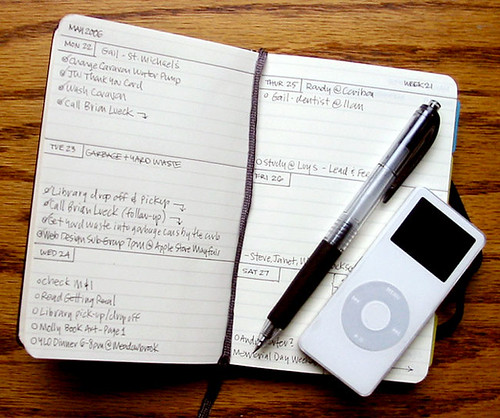 MAY 2006
MON 22 Gail - St. Michael's
Change Caravan Water Pump
JW Thank You Card
Wash Caravan
Call Brian Lueck
TUE 23 GARBAGE + YARD WASTE
Library drop off & pickup
Call Brian Lueck (follow-up)
Get yard waste into garbage cans by the curb
Web Design Sub-Group 7pm @ Apple Store Mayfair
WED 24
check
Read Getting Real
Library pick-up/dropoff
Molly Book Art - Page 1
YLG Dinner 6-8pm @ Meadowbrook
THUR 25 Randy @ Caribou WEEK 21
Gail - dentist @ 11am
Study @ Luy's - Lead &
FRI 26
- Steve, Janet,
SAT 27
Memorial Day
MENU